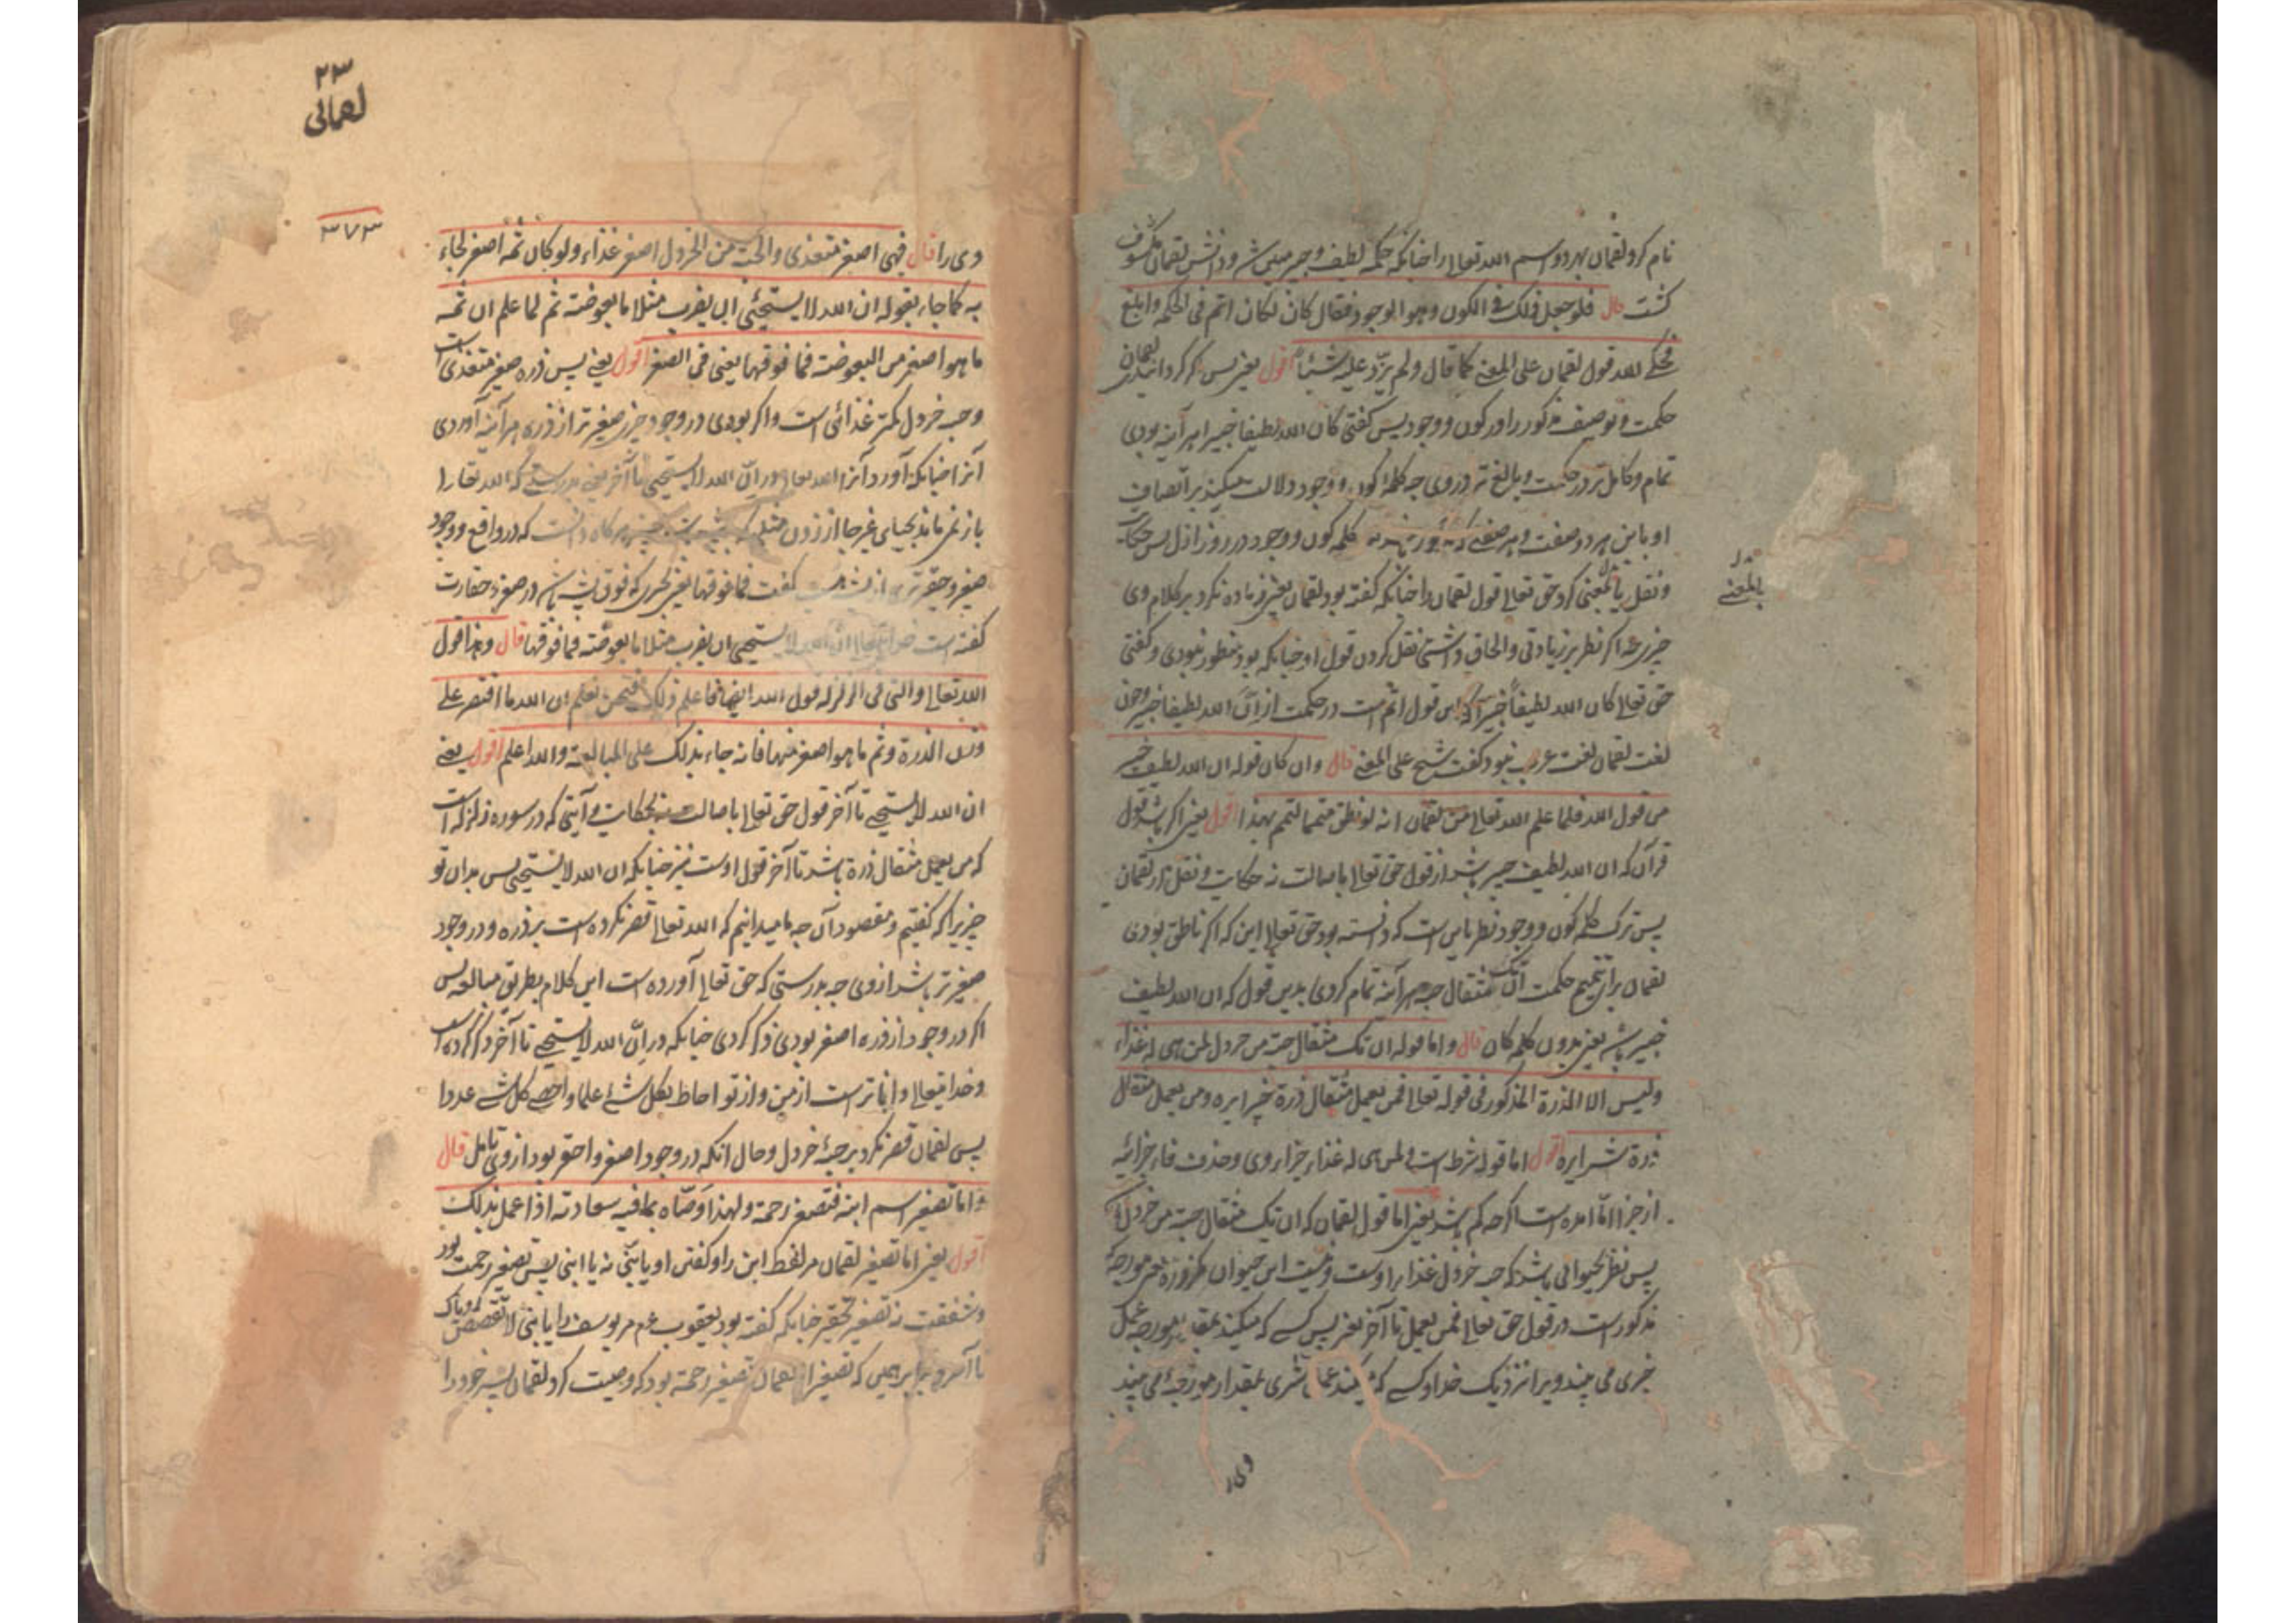 نام کرد لقمان بهر دو اسم الله تعالی را چنانکه حکمه لطیف و خبیر مبین شد و دانش لقمان مکشوف
کشت قال فلو جعل ذلک فی الکون و هو الوجود فقال کان لکان اتم فی الحکمه و ابلغ
فحکی الله قول لقمان علی المعنی کما قال و لم یزد علیه شیئا اقول یعنی پس اکر کردانیدی لقمان
حکمت و توصیف مذکور را در کون و وجود پس کفتی کان الله لطیفا خبیرا هر آینه بودی
تمام و کامل تر در حکمت و بالغ تر در وی چه کلمهٔ کون و وجود دلالت میکند بر اتصاف
او باین هر دو صفت و کلمه کون و وجود در روز ازل پس حکایت
و نقل بالمعنی کرد حق تعالی قول لقمان را چنانکه کفته بود لقمان یعنی زیاده نکرد بر کلام وی
چیزی چه اکر نظر بر زیادتی و الحاق داشتی نقل کردن قول او چنانکه بود منظور نبودی و کفتی
حق تعالی کان الله لطیفا خبیرا که این قول اتم است در حکمت از ان الله لطیف خبیر و چون
لغت لقمان لغت عرب نبود کفت شیخ علی المعنی قال و ان کان قوله ان الله لطیف خبیر
من قول الله فلما علم الله تعالی من لقمان انه لو نطق متمما لتمم بهذا اقول یعنی اکر باشد قول
قرآن که ان الله لطیف خبیر باشد از قول حق تعالی باصالت نه حکایت و نقل از لقمان
پس ترک کلمه کون و وجود نظر باین است که دانسته بود حق تعالی این که اکر ناطق بودی
لقمان برای تتمیم حکمت ان تک مثقال حبه هر آینه تمام کردی بدین قول که ان الله لطیف
خبیر باشد یعنی بدون کلمه کان قال و اما قوله ان تک مثقال حبة من خردل لمن هی له غذاء
و لیس الا الذرة المذکور فی قوله تعالی فمن یعمل مثقال ذرة خیرا یره و من یعمل مثقال
ذرة شرا یره اقول اما قوله شرط است و لمن هی له غذاء جزاء وی و حذف فاء جزائیه
از جزا اما آمده است اکرچه کم باشد یعنی اما قول لقمان که ان تک مثقال حبة من خردل
پس نظر بحیوانی باشد که حبه خردل غذا مر او راست و نیست این حیوان مکر ذره یعنی مورچهٔ
مذکور است در قول حق تعالی فمن یعمل تا آخر یعنی پس کسی که میکند بمقدار مورچه عمل
خیری می بیند ویرا نزدیک خدا و کسی که میکند عمل شری بمقدار مورچهٔ می بیند
وی را
بدل
بالمعنی
۲۳
لقمانی
۳۷۳
وی را قال فهی اصغر متغذی و الحبة من الخردل اصغر غذاء و لو کان ثمه اصغر لجاء
به کما جاء بقوله ان الله لا یستحیی ان یضرب مثلا ما بعوضة ثم لما علم ان ثمه
ما هو اصغر من البعوضة فما فوقها یعنی فی الصغر اقول یعنی پس ذره صغیر متغذی است
و حبه خردل کمتر غذائی است و اکر بودی در وجود چیزی صغیر تر از ذره هر آینه آوردی
آنرا چنانکه آورد آنرا الله تعالی در ان الله لا یستحیی تا آخر یعنی بدرستی که الله تعالی را
باز نمی ماند بحیای غیر جا از زدن مثلی که دانست که در واقع و وجود
صغیر و حقیرتری از پشه است کفت فما فوقها یعنی چیزی که فوق پشه باشد در صغر و حقارت
کفته است خدایتعالی ان الله لا یستحیی ان یضرب مثلا ما بعوضة فما فوقها قال و هذا قول
الله تعالی و التی فی الزلزلة قول الله ایضا فاعلم ذلک فنحن نعلم ان الله ما اقتصر علی
وزن الذرة و ثم ما هو اصغر منها فانه جاء بذلک علی المبالغة و الله اعلم اقول یعنی
ان الله لا یستحیی تا آخر قول حق تعالی باصالت نه بحکایت و آیتی که در سوره زلزله است
که من یعمل مثقال ذرة باشد تا آخر قول اوست نیز چنانکه ان الله لا یستحیی پس بدان تو
چیزیرا که کفتیم و مقصود آن چه ما میدانیم که الله تعالی قصر نکرده است بر ذره و در وجود
صغیر تر باشد از وی چه بدرستی که حق تعالی آورده است این کلام بطریق مبالغه پس
اکر در وجود از ذره اصغر بودی ذکر کردی چنانکه در ان الله لا یستحیی تا آخر ذکر کرده است
و خدایتعالی داناتر است از من و از تو احاط بکل شیٔ علما و احصی کل شیٔ عددا
پس لقمان قصر نکرد بر حبهٔ خردل و حال آنکه در وجود اصغر و احقر بود از وی تامل قال
و اما تصغیر اسم ابنه فتصغیر رحمة و لهذا وصاه بما فیه سعادته اذا عمل بذلک
اقول یعنی اما تصغیر لقمان مر لفظ ابن را و کفتن او یا بنی نه یا ابنی پس تصغیر رحمت بود
و شفقت نه تصغیر تحقیر چنانکه کفته بود یعقوب عم مر یوسف را یا بنی لا تقصص رویاک
که تصغیر لقمان تصغیر رحمة بود که وصیت کرد لقمان پسر خود را